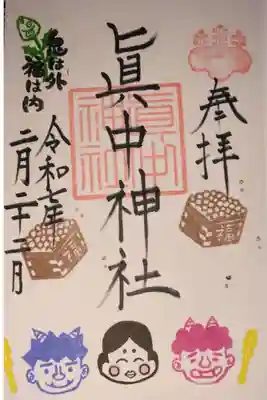 奉拝
眞中神社
眞中
神社
鬼は外
福は内
令和七年
二月二十二日
福
福